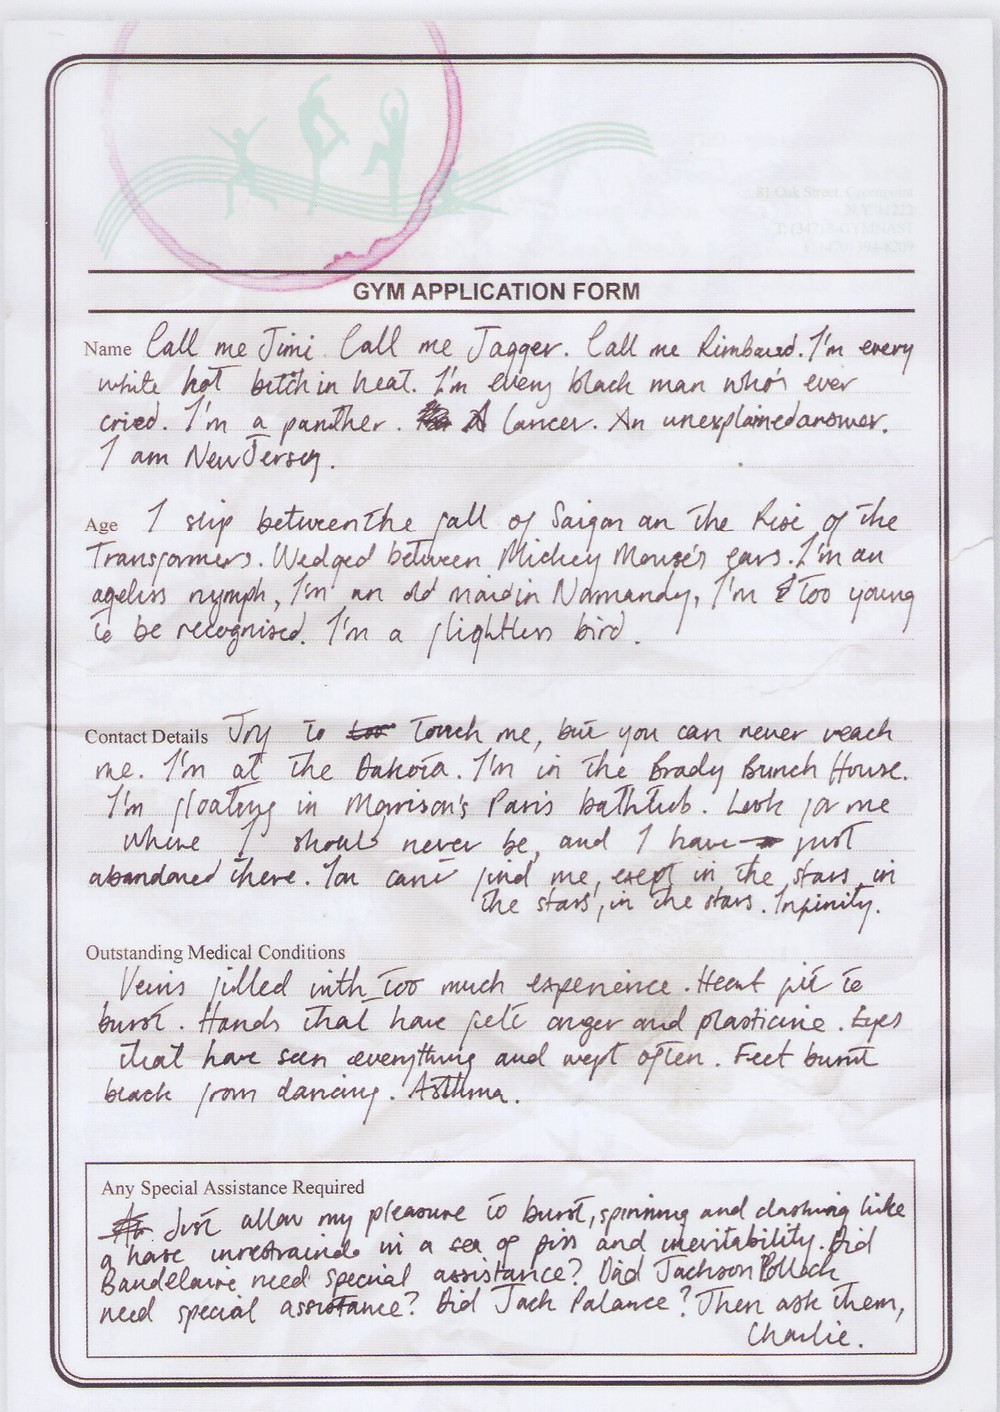 81 Oak Street, Greenpoint
N.Y. 11222
GYM APPLICATION FORM
Name Call me Jimi. Call me Jagger. Call me Rimbaud. I'm every
white hot bitch in heat. I'm every black man who's ever
cried. I'm a panther. A Cancer. An unexplained answer.
I am New Jersey.
Age I slip between the fall of Saigon an the Rise of the
Transformers. Wedged between Mickey Mouse's ears. I'm an
ageless nymph, I'm an old maid in Normandy, I'm too young
to be recognised. I'm a flightless bird.
Contact Details Try to touch me, but you can never reach
me. I'm at the Dakota. I'm in the Brady Bunch House.
I'm floating in Morrison's Paris bathtub. Look for me
where I should never be, and I have just
abandoned there. You can't find me, exept in the stars, in
the stars, in the stars. Infinity.
Outstanding Medical Conditions
Veins filled with too much experience. Heart fit to
burst. Hands that have felt anger and plasticine. Eyes
that have seen everything and wept often. Feet burnt
black from dancing. Asthma.
Any Special Assistance Required
Just allow my pleasure to burst, spinning and clashing like
a hose unrestrained in a sea of piss and inevitability. Did
Baudelaire need special assistance? Did Jackson Pollock
need special assistance? Did Jack Palance? Then ask them,
Charlie.